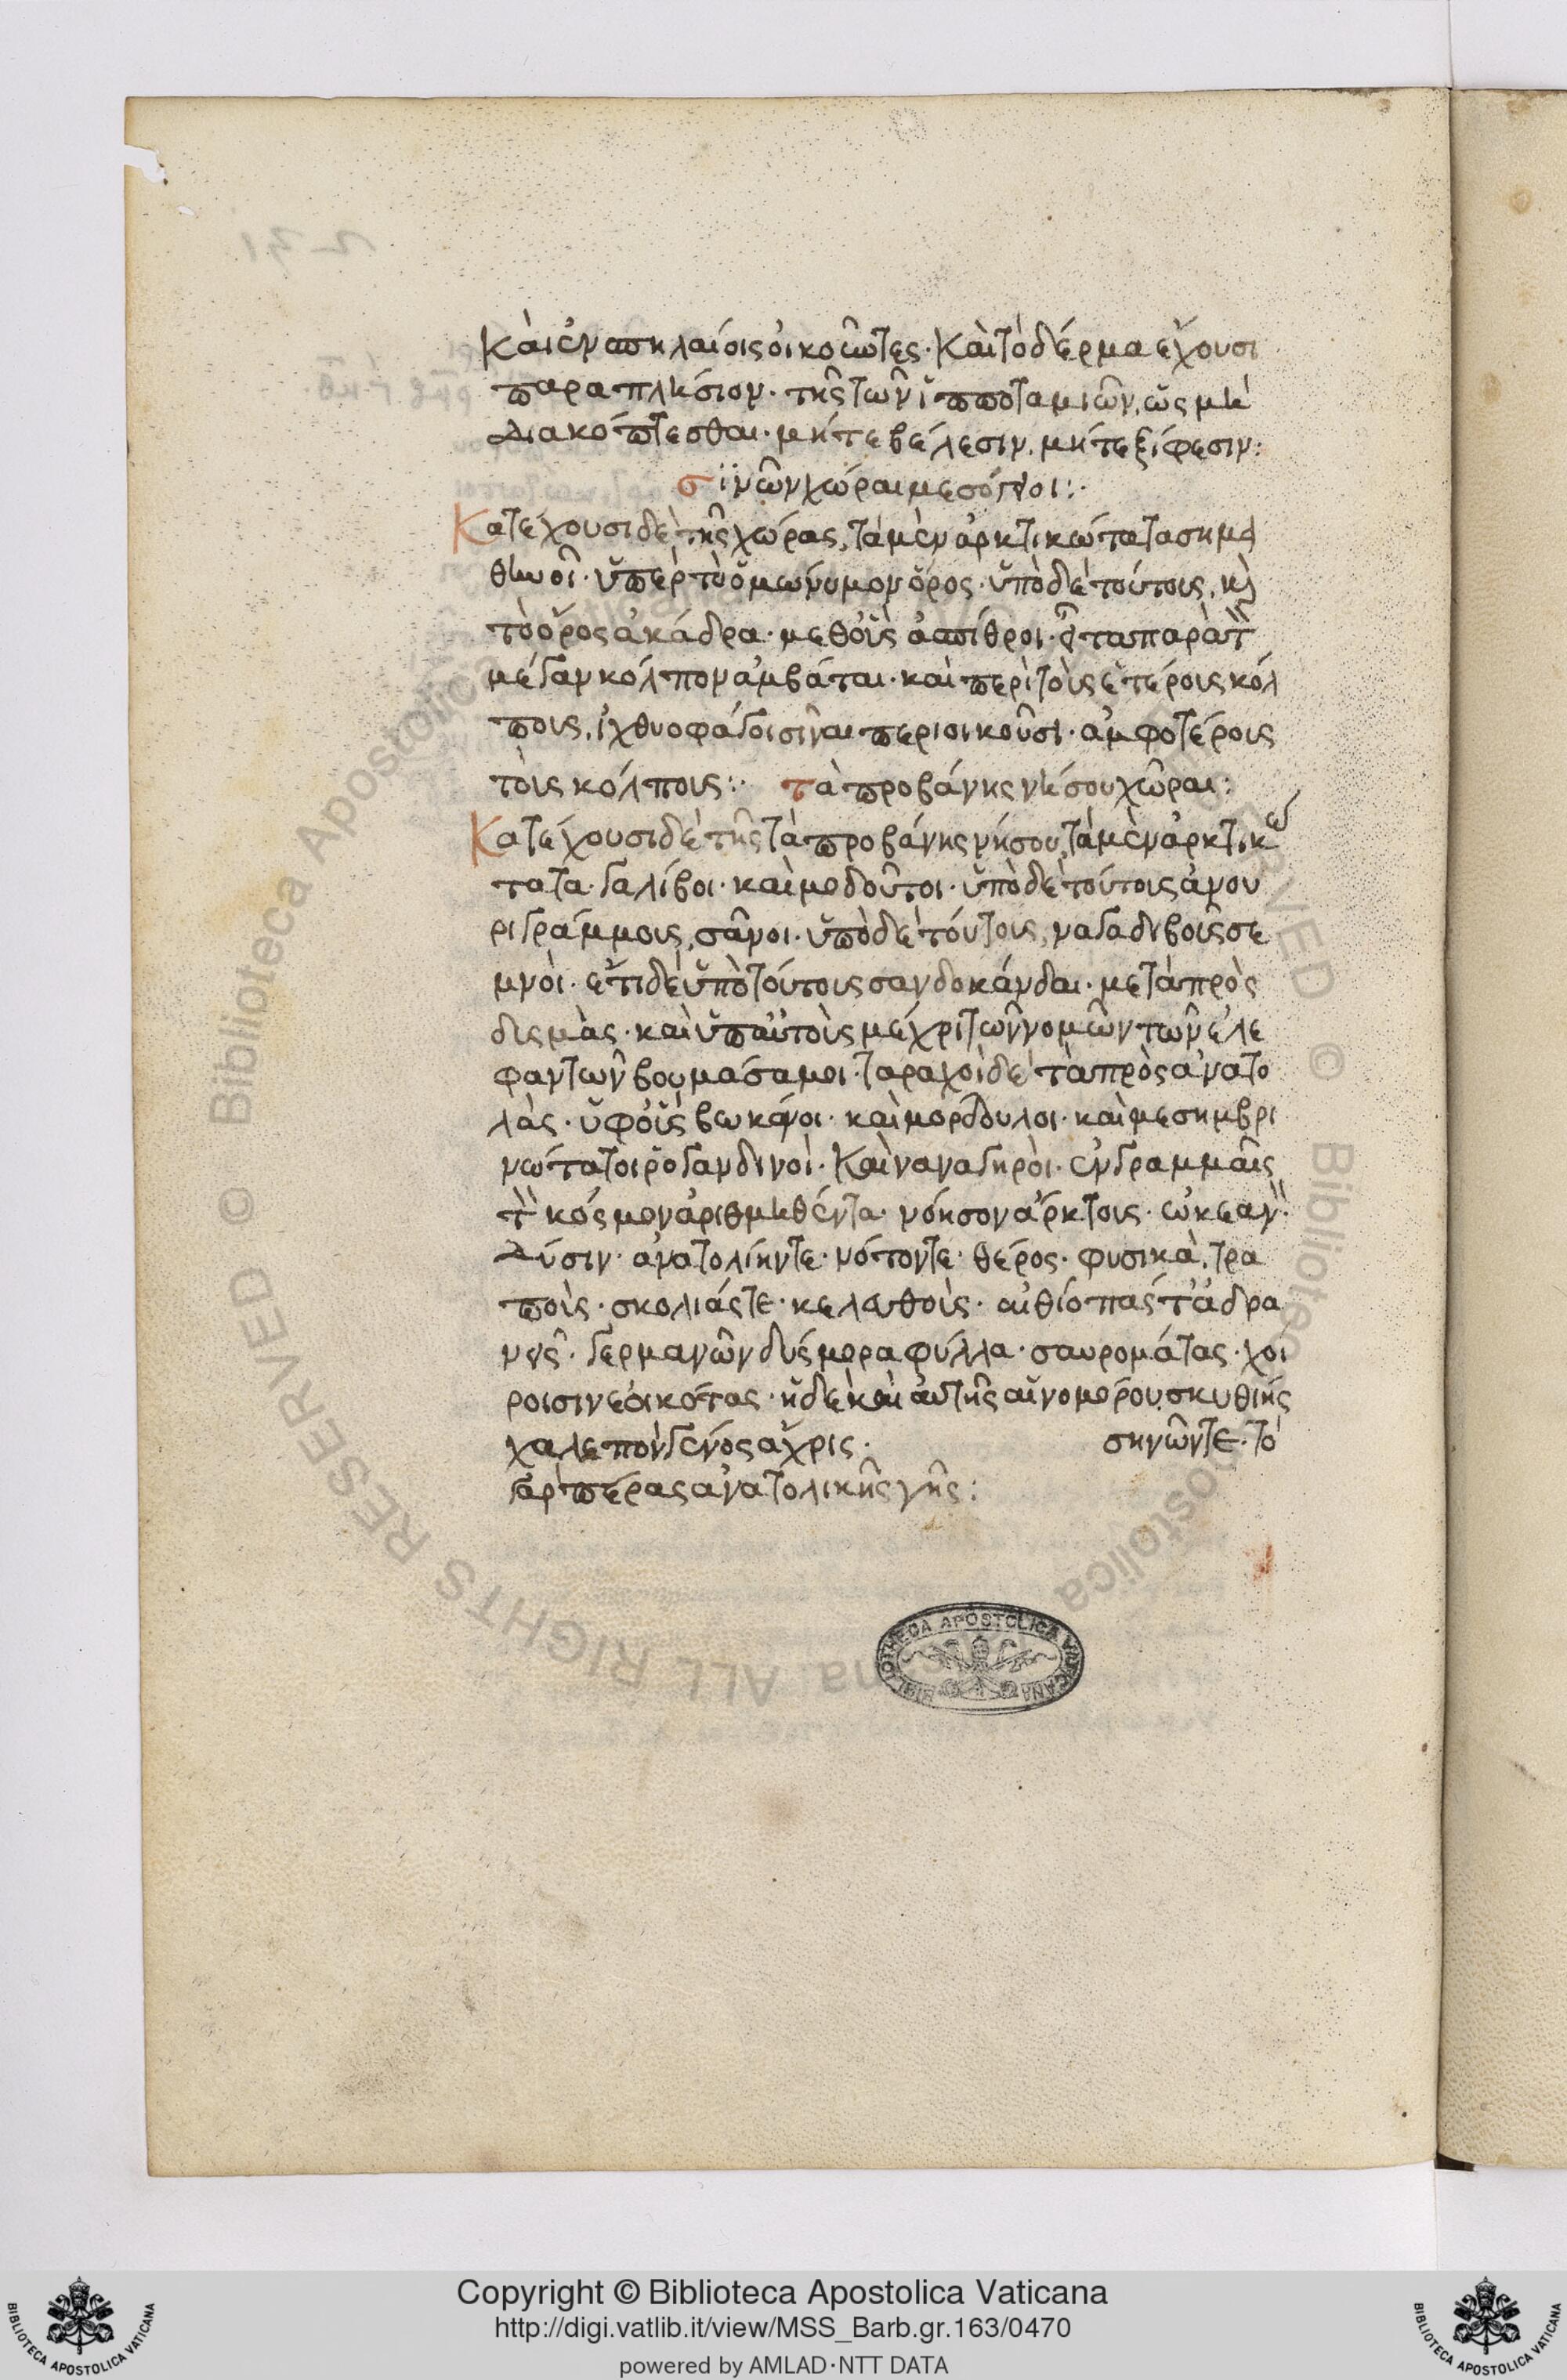 καὶ ἐν σπηλαίοις οἰκοῦντες· καὶ τὸ δέρμα ἔχουσι
παραπλήσιον· τῆς τῶν ἱπποποταμιῶν, ὡς μὴ
διακόπτεσθαι· μήτε βέλεσιν, μήτε ξίφεσιν:
σϊνῶν χώραι μεσόγειοι:·
Κατέχουσι δὲ τῆς χώρας, τὰ μὲν ἀρκτικώτατα σημα
θηνοὶ· ὑπὲρ τὸ ὁμώνυμον ὄρος· ὑπὸ δὲ τούτοις, κὶ
τὸ ὄρος ἀκάδρα· μεθ' οὓς ἀσπίθροι· εἶτα παρὰ τ̀
μέγαν κόλπον ἀμβάται· καὶ περὶ τοὺς ἑτέροις κόλ
ποις, ἰχθυοφάγοι σίναι περιοικοῦσι· ἀμφοτέροις
τοῖς κόλποις:· ταπροβάνης νήσου χῶραι:
Κατέχουσι δὲ τῆς ταπροβάνης νήσου, τὰ μὲν ἀρκτικώ
τατα· γαλίβοι· καὶ μοδοῦτοι· ὑπὸ δὲ τούτοις ἀνου
ριγράμμοις, σᾶνοι· ὑπὸ δὲ τούτοις, ναγαδιβοῖς σε
μνοὶ· ἔτι δὲ ὑπὸ τούτοις σανδοκάνδαι· μετὰ πρὸς
δισμὰς· καὶ ὑπ' αὐτοὺς μέχρι τῶν νομῶν τῶν ἐλε
φάντων βουμάσαμοι· ταραχοὶ δὲ τὰ πρὸς ἀνατο
λὰς· ὑφ' οὓς βωκάνοι· καὶ μορδουλοι· καὶ μεσημβρι
νώτατοι ῥογανδινοὶ· καὶ ναναγηροὶ· ἐν γραμμαῖς
τ̀ κόσμον ἀριθμηθέντα· νόησον ἄρκτοις· ὠκεαν̀·
δύσιν· ἀνατολίην τε· νότον τε· θέρος· φυσικὰ, τρα
ποὺς· σκολιάς τε· κελευθοὺς· αἰθίοπάς τ' ἀδρα
νεῖς· γερμανῶν δύσμορα φύλλα· σαυρομάτας· χοί
ροισιν ἐοικότας· ἠδὲ καὶ αὐτῆς αἰνομόρου σκυθίης
χαλεπὸν γένος ἄχρις· σηνῶν τε· τὸ
γὰρ πέρας ἀνατολικῆς γῆς:
BIBLIOTHECA APOSTOLICA VATICANA
© Biblioteca Apostolica Vaticana ALL RIGHTS RESERVED
Copyright © Biblioteca Apostolica Vaticana
http://digi.vatlib.it/view/MSS_Barb.gr.163/0470
powered by AMLAD·NTT DATA
BIBLIOTECA APOSTOLICA VATICANA
BIBLIOTECA APOSTOLICA VATICANA